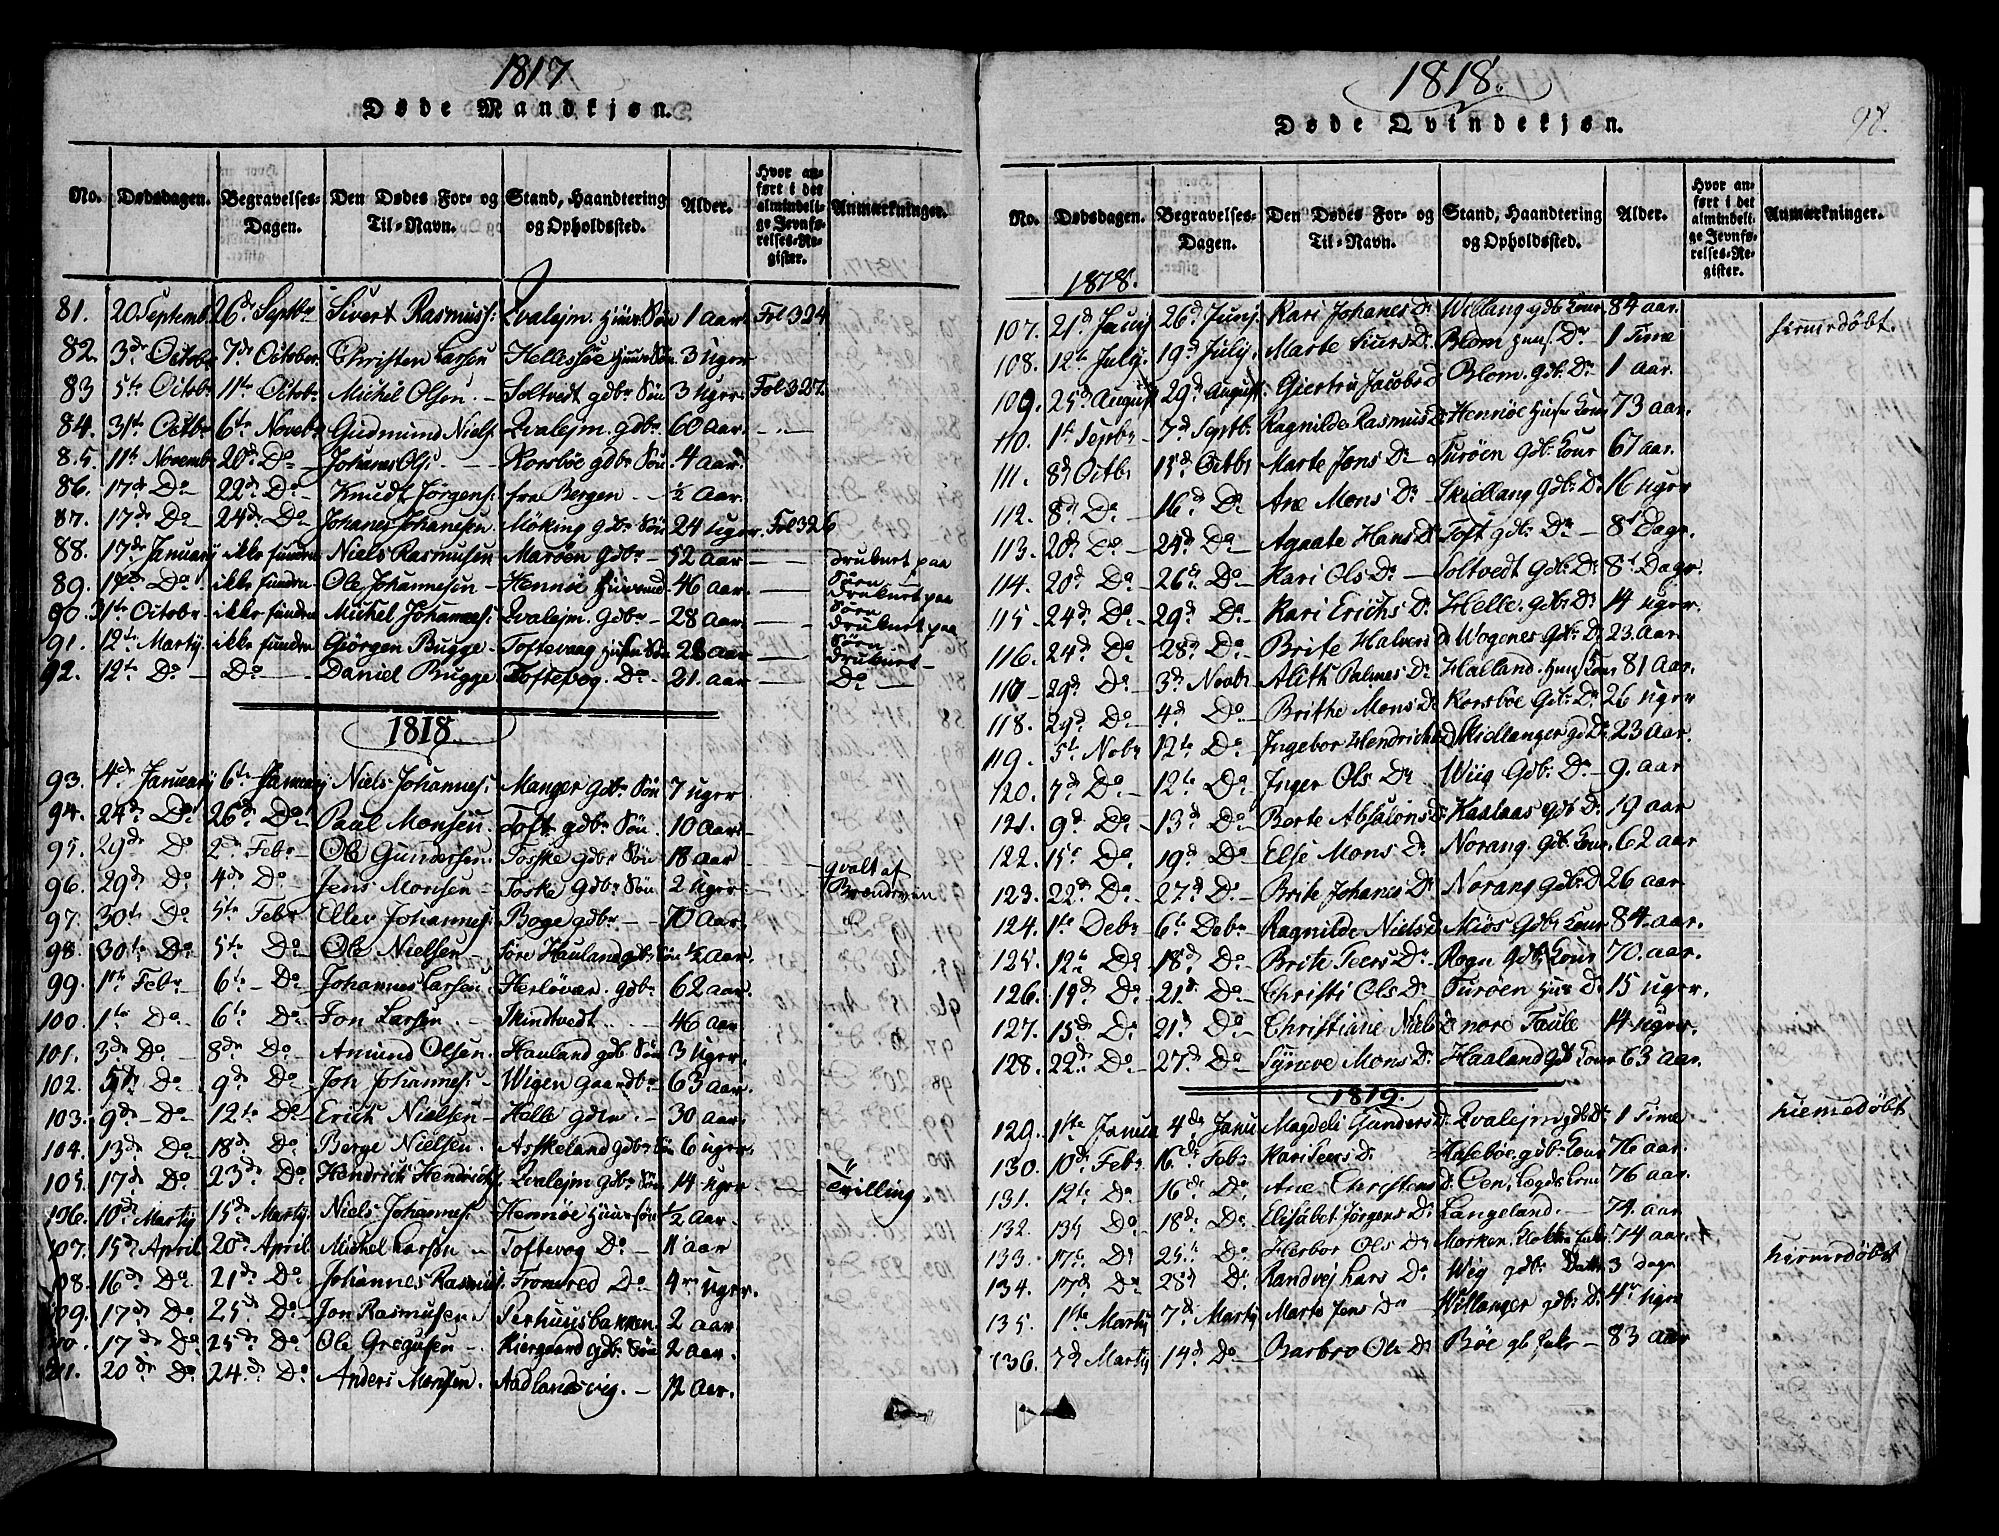 1817
Døde Mandkjøn.
No. Dødsdagen. Begravelses-Dagen. Den Dødes For- og Til-Navn. Stand, Haandtering og Opholdssted. Alder. Hvor anført i det almindelige Jevnførelses-Register. Anmærkninger.
81. 20 Septemb. 26de Septbr Sivert Rasmuss: Qvalejm. Huus Søn 1 aar. Fol 324
82. 3de Octobr 7de October Christen Larsen Hellisøe Huus Søn 3 uger
83 5te Octobr 11te Octobr Michel Olsen. Soltvedt gdbr Søn 3 uger. Fol 327.
84. 31te Octbr 6te Novebr Gudmund Niels Qvalejm. gdbr. 60 aar.
85. 11te Novembr 20de Do Johanes Ols: Korsbøe gdbr Søn 4 aar.
86. 17de Do 22de Do Knudt Jørgens: fra Bergen ½ aar.
87. 17de Do 24de Do Johanes Johanesen Møking gdbr Søn 24 uger. Fol 326
88. 17de January ikke funden Niels Rasmusen Marøen gdbr 52 aar druknet paa Søen
89. 17de Do ikke funden Ole Johannesen Hennøe Huusmand 46 aar. druknet paa Søen
90. 31te Octobr ikke funden Michel Johannes: Qvalejm gdbr 28 aar druknet paa Søen
91. 12te Marty ikke funden Giørgen Bugge Toftevaag Huus Søn 28 aar druknet
92. 12te Do Do Daniel Bugge Toftevog. Do 21. aar Do
1818
93. 4de January 6te January Niels Johannes: Manger gdbr Søn 7 uger
94. 24de Do 26de Do Paul Monsen. Toft gdbr Søn 10 aar
95. 29de Do 2de Febr Ole Gundersen. Toske gdbr Søn 18 aar
96. 29de Do 4de Do Jens Monsen Toske gdbr Søn 2 uger. qvalt af
97. 30te Do 5te Febr Eller Johannes: Boge gdbr 70 aar.
98. 30te Do 5te Do Ole Nielsen Søre Hauland gdbr Søn ½ aar.
99. 1te Febr 6te Do Johannes Larsen Herløvær. gdbr 62 aar.
100. 1te Do 6te Do Jon Larsen. Skindtvedt. 46 aar.
101. 3de Do 8de Do Amund Olsen. Hauland gdbr Søn 3 uger.
102. 5te Do 9de Do Jon Johannes: Wigen gaardbr 63 aar
103. 9de Do 12te Do Erich Nielsen Helle gdbr. 30 aar.
104. 13de Do 18de Do Berge Nielsen. Askeland gdbr Søn 6 uger.
105. 17de Do 23de Do Hendrich Hendrichs. Qvalejm gdbr Søn 14 uger Tvilling.
106. 10de Marty 15de Marty. Niels Johannes: Hennøe Huus søn ½ aar.
107. 15de April 20de April Michel Larsen Toftevog Do 11 aar
108. 16de Do 21de Do Johannes Rasmus. Fromred Do 4re uger.
109. 17de Do 25de Do Jon Rasmusen. Perhuusbakken 2 aar.
110. 17de Do 25de Do Ole Gregusen Kiergaard gdbr Søn 2 aar.
111. 20de Do 24de Do Anders Monsen. Aadlandsvig. 12 aar.
1818.
Døde Qvindekjøn.
98.
No. Dødsdagen. Begravelses-Dagen. Den Dødes For- og Til-Navn. Stand, Haandtering og Opholdssted. Alder. Hvor anført i det almindelige Jevnførelses-Register. Anmærkninger.
1818.
107. 21de Juny 26de Juny. Kari Johanes Dr Willang gdb Kone 84 aar.
108. 12te July. 19de July. Marte Siurs Dr Blom Huus. Dr 1 Time hiemedøbt.
109. 25de August 29de August. Giertru Jacobs D Blom. gdb. Dr 1 aar.
110. 1te Septbr 7de Septb. Ragnilde Rasmus D Hennøe Huus Kone 73 aar.
111. 8de Octbr 15de Octbr Marte Jons Dr Turøen gdb. Kone 67 aar.
112. 8de Do 16de Do Ane Mons Dr Skidlang gdb. Dr 16 uger
113. 20de Do 24de Do Agaate Hans D Toft gdb. Dr 8te Dage.
114. 20de Do 26de Do Kari Ols Dr Soltvedt gdb. Dr 8te Dage.
115 24de Do 29de Do Kari Erichs Dr Helle. gdb. Dr 14 uger.
116. 24de Do 28de Do Brite Halvers D Wogenes gdb. Dr 23. aar
117 29de Do 3de Novbr Alith Palmes Dr Halland. Huus Kone 81 aar.
118. 29de Do 4de Do Brithe Mons Dr Korsbøe gdb. Dr 26 uger
119. 5te Nobr 12te Do Ingebor Hendrichs D Midlanger gd Dr 23 aar.
120. 7de Do 12te Do Inger Ols Dr Wiig gdb. Dr 9. aar
121. 9de Do 13de Do Berte Absalons D. Kaalaas gdb Dr 19 aar
122. 15de Do 19de Do Else Mons Dr Norang. gdb. Kone. 62 aar
123. 22de Do 27de Do Brite Johanes Dr Norang gdb. D 26 aar
124. 1te Debr 6te Debr Ragnilde Niels D. Miøs gdb. Kone 84. aar.
125. 12te Do 18de Do Brite Peers Dr Rogn gdb. Kone 70. aar.
126. 19de Do 21de Do Christi Ols Dr Turøen Huus D. 15 uger.
127. 15de Do 21de Do Christiane Niels D nore Taule 14 uger.
128. 22de Do 27de Do Syneve Mons Dr Haaland gdb Kone 63 aar.
1819.
129. 1te Janua 4de Janu Magdeli Gunders D. Qvalejm gdb Dr 1 Time hiemedøbt
130. 10de Febr 16de Febr Kari Peers Dr Husebøe. gdbr Kone 76 aar.
131. 12te Do 16de Do Ane Christens D. Cen, Lægds Kone 76 aar.
132. 13de Do 18de Do Elisabet Jørgens Dr Langeland. 74. aar
133. 17de Do 25de Do Herbor Ols Dr Marken. 74 aar.
134. 17de Do 28de Do Randvej Lars Dr Wig gdbr Datter 3 dage hiemedøbt
135. 1te Marty 7de Marty Marte Jens Dr Willanger gdb. D. 4re uger
136. 7de Marty 14de Do Barbro Ols Dr Bøe gb 83 aar